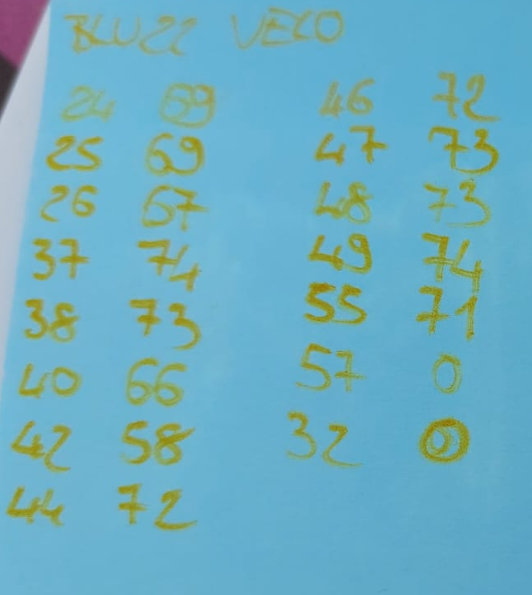 BLUZZ VELO
24 69 46 72
25 69 47 73
26 67 48 73
37 74 49 74
38 73 55 71
40 66 57 0
42 58 32 0
44 72